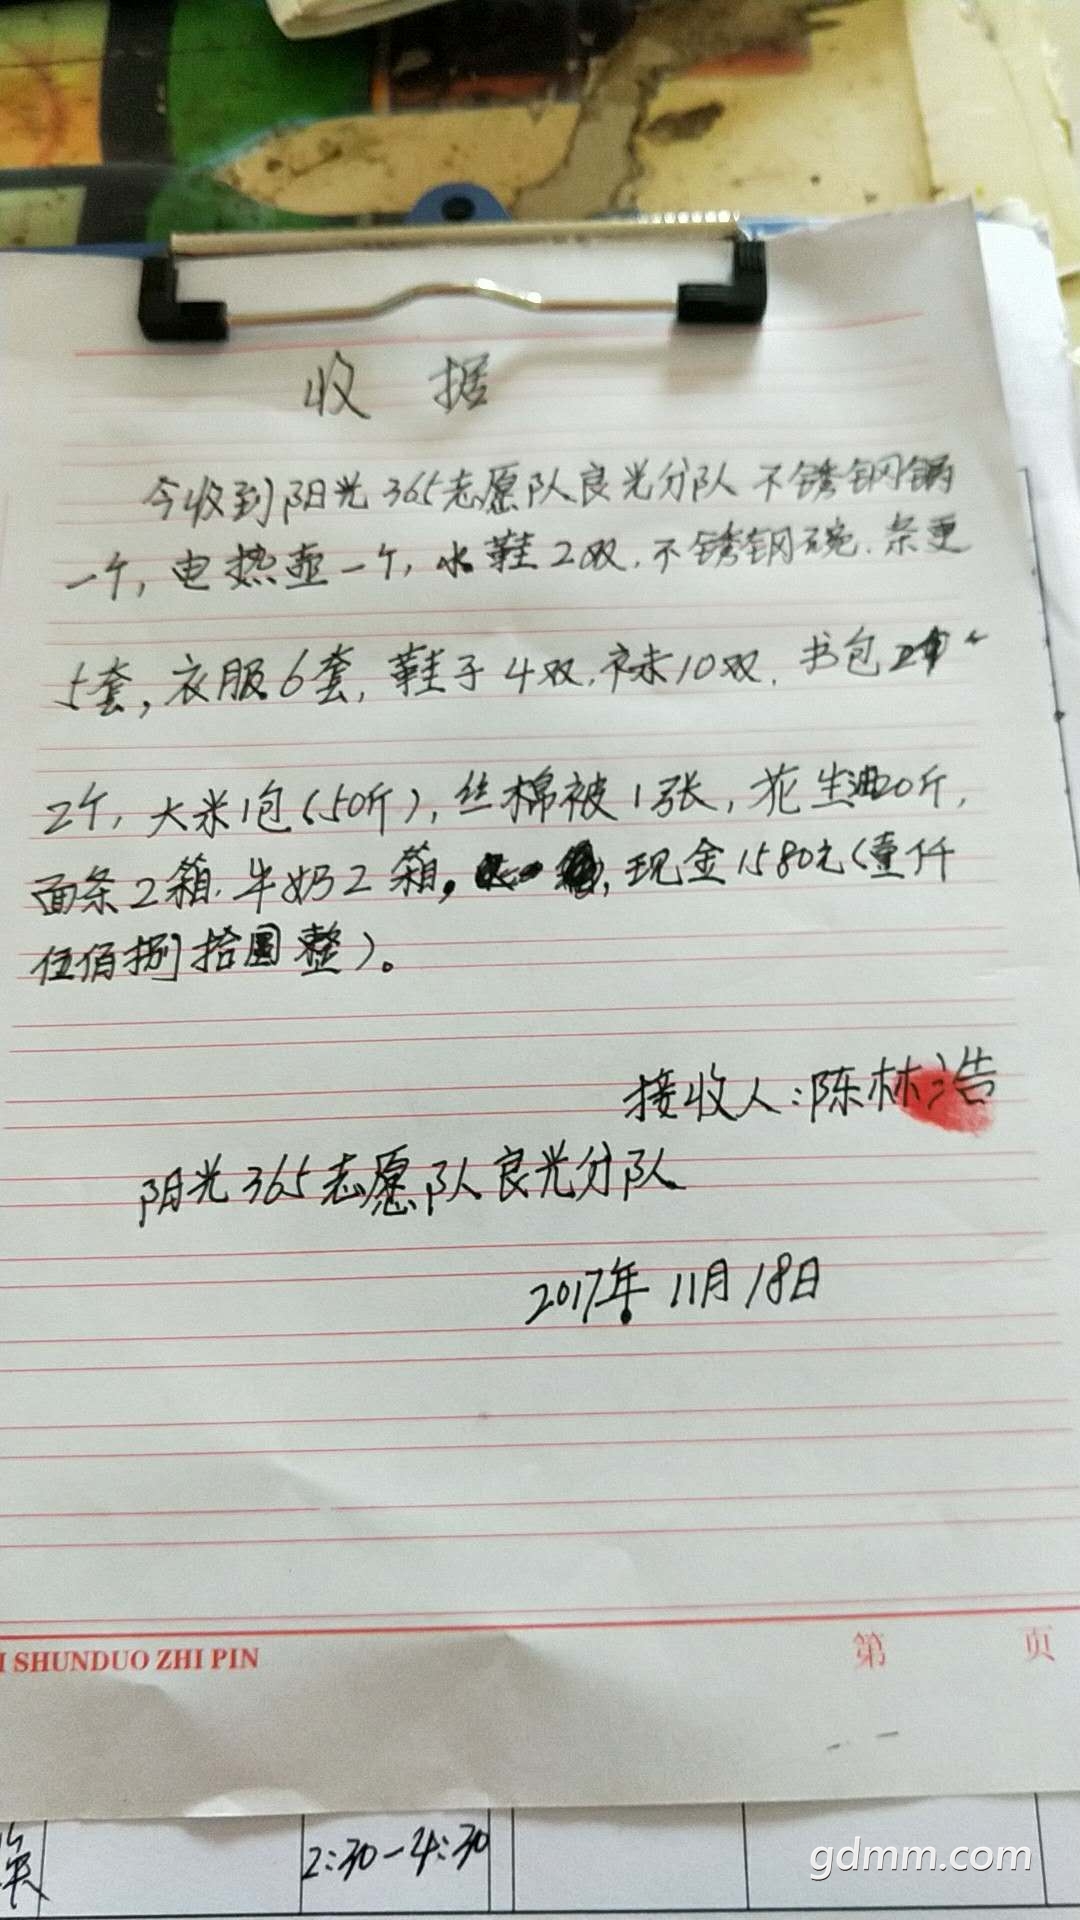 收据
今收到阳光365志愿队良光分队不锈钢锅
一个,电热壶一个,水鞋2双,不锈钢碗、条更
5套,衣服6套,鞋子4双,袜10双,书包
2个,大米1包(50斤),丝棉被1张,花生油20斤,
面条2箱,牛奶2箱,现金1580元(壹仟
伍佰捌拾圆整)。
接收人:陈林浩
阳光365志愿队良光分队
2017年11月18日
I SHUNDUO ZHI PIN
第 页
2:30-4:30
gdmm.com